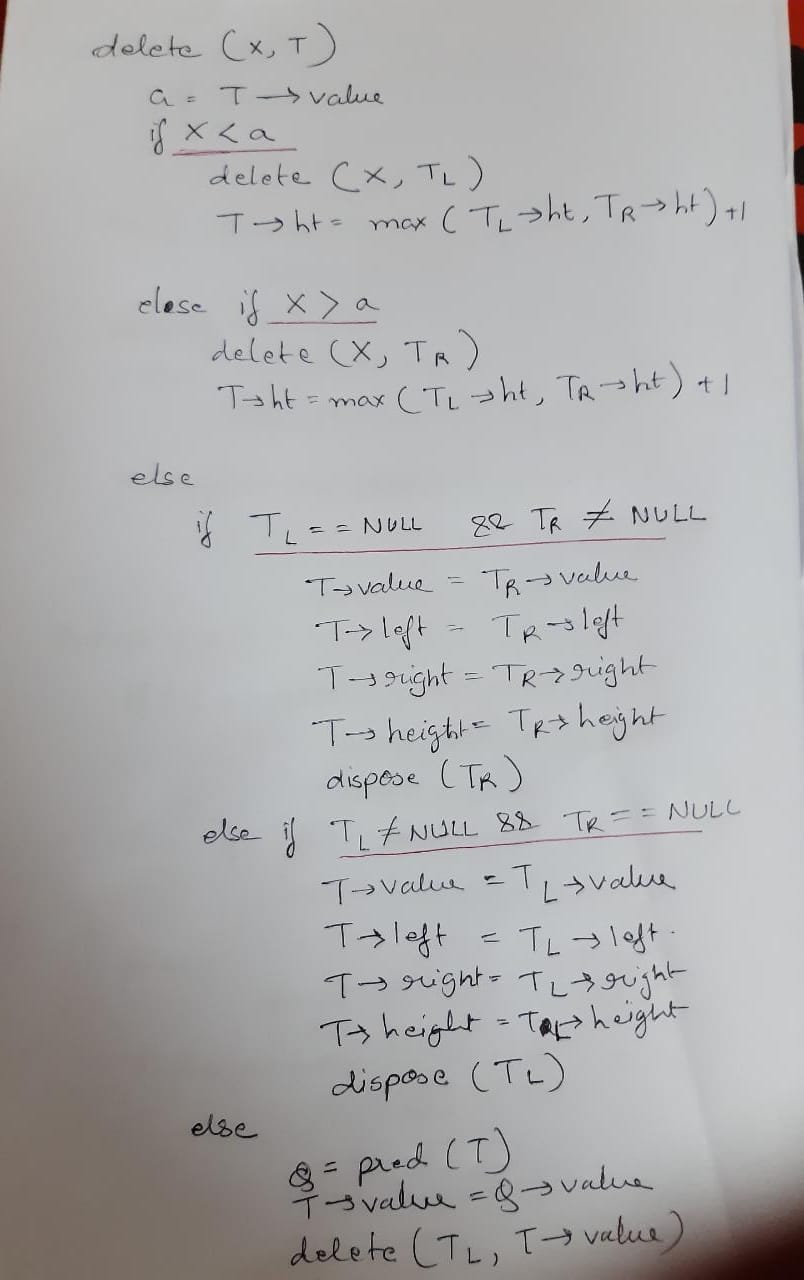 delete (x, T)
a = T → value
if x < a
delete (x, TL)
T → ht = max ( TL → ht, TR → ht ) +1
elese if x > a
delete (x, TR)
T → ht = max ( TL → ht, TR → ht ) + 1
else
if TL == NULL && TR ≠ NULL
T → value = TR → value
T → left = TR → left
T → right = TR → right
T → height = TR → height
dispose (TR)
else if TL ≠ NULL && TR == NULL
T → value = TL → value
T → left = TL → left.
T → right = TL → right
T → height = TL → height
dispose (TL)
else
Q = pred (T)
T → value = Q → value
delete (TL, T → value)